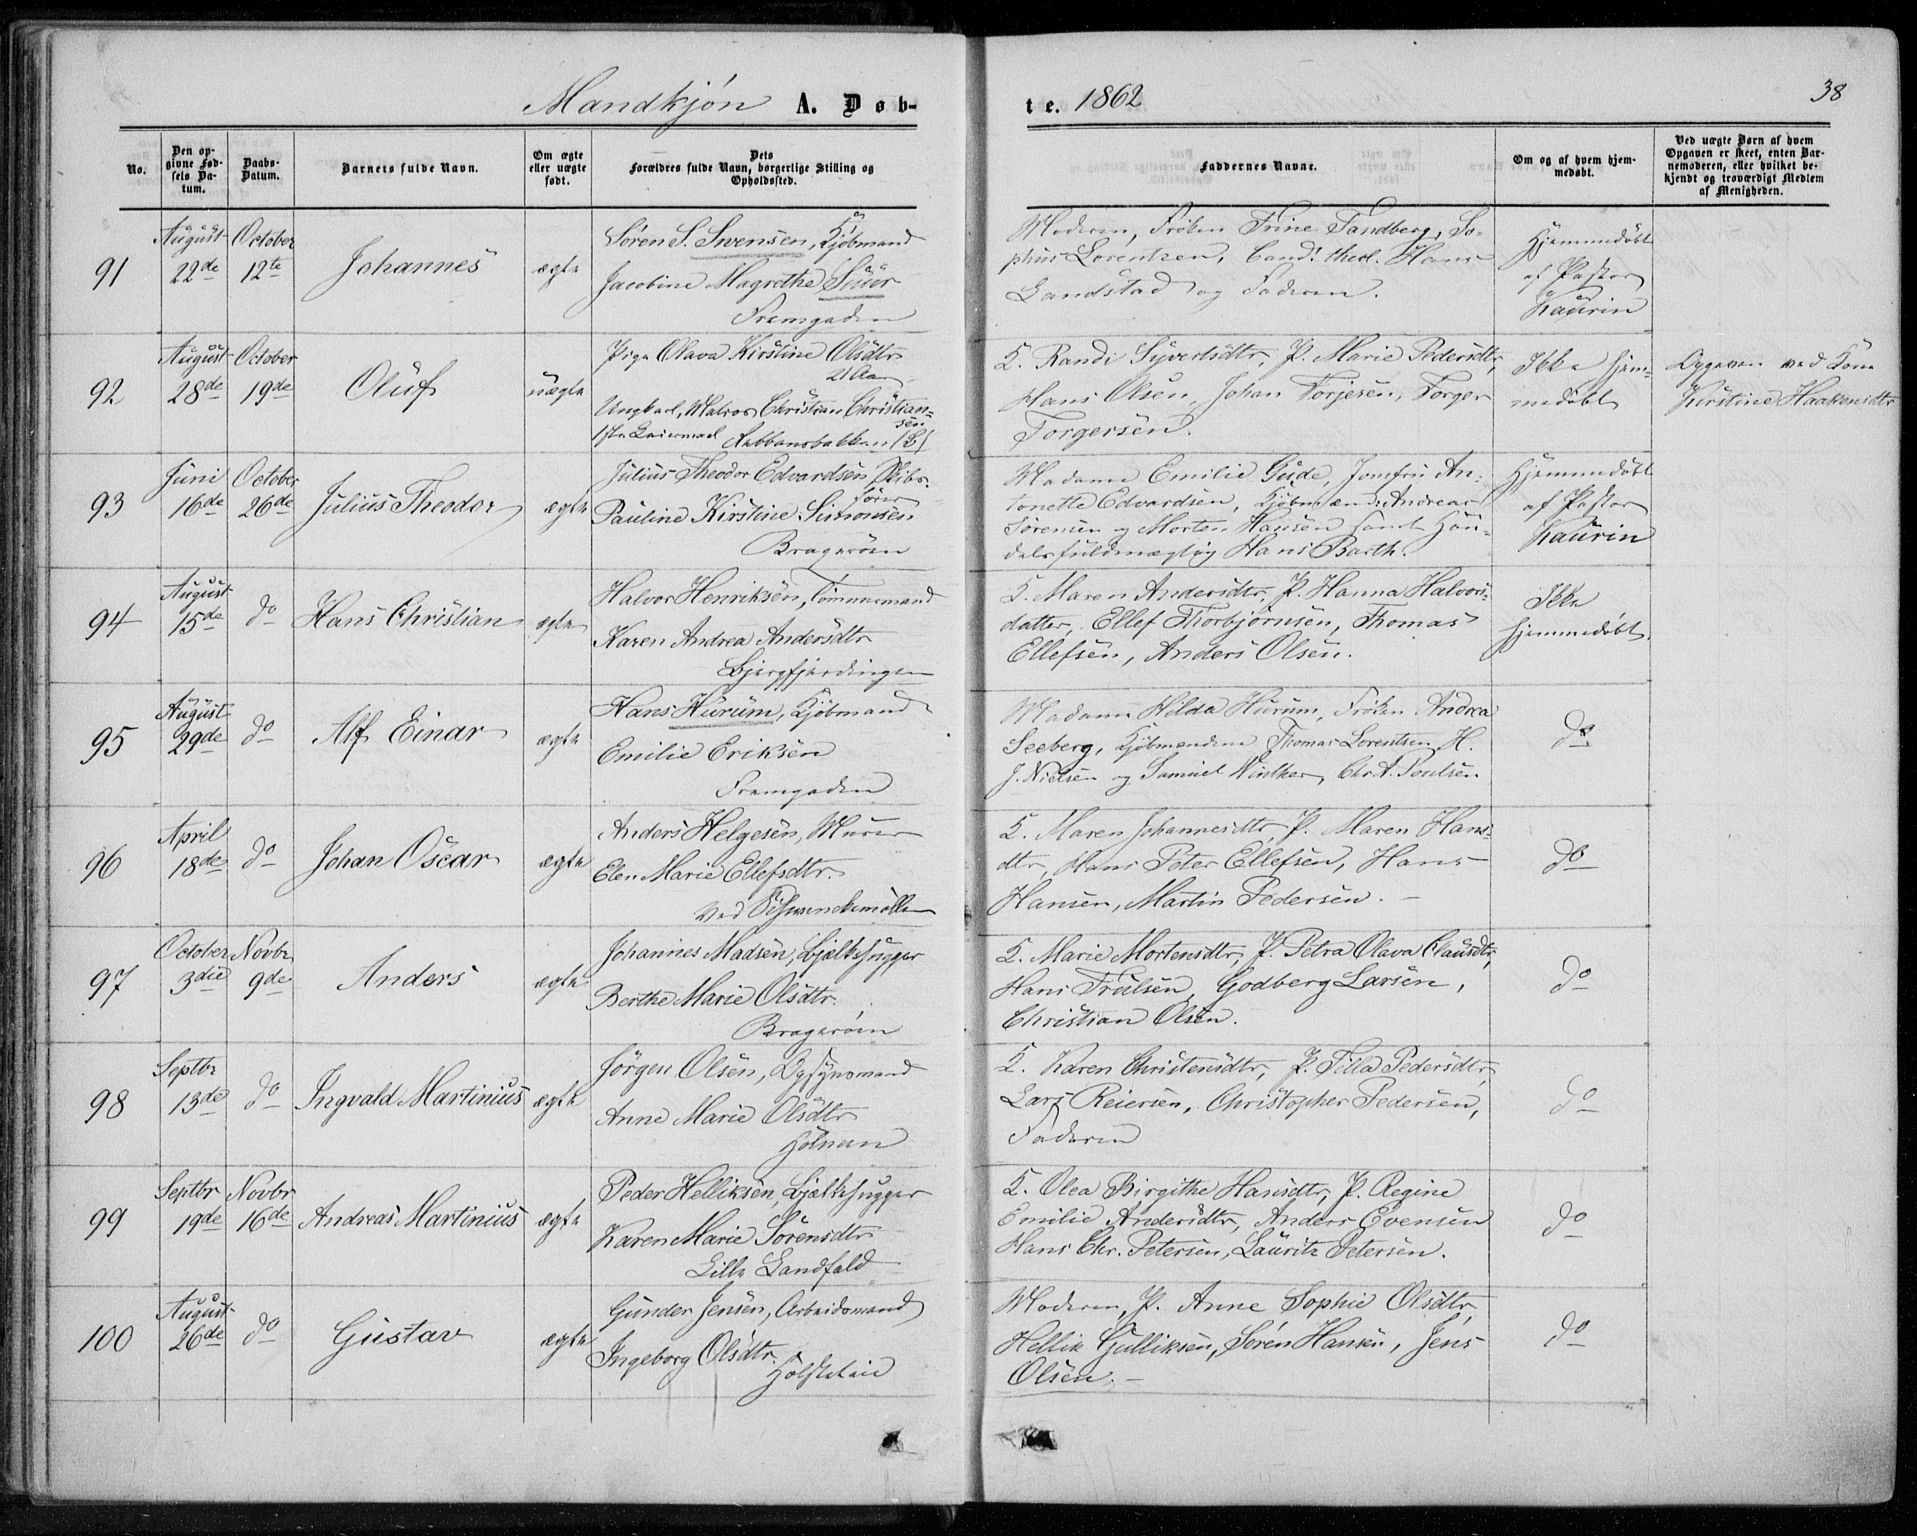 Mandkjön A. Døb-
te. 1862
38
No.
Den op-
givne Fød-
sels Da-
tum.
Daabs-
Datum.
Barnets fulde Navn.
Om ægte
eller uægte
født.
Dets
Forældres fulde Navn, borgerlige Stilling og
Opholdssted.
Faddernes Navne.
Om og af hvem hjem-
medøbt.
Ved uægte Børn af hvem
Opgaven er skeet, enten Bar-
nemoderen, eller hvilket be-
kjendt og troværdigt Medlem
af Menigheden.
91
August
22de
October
12te
Johannes
ægte
Sören S. Svensen, Kjöbmand
Jacobine Magrethe
Fremgaden
Moderen, Fröken Trine Sandberg, So-
phus Lorentzen, Cand. theol. Hans
Landstad og Faderen.
Hjemmedöbt
af Pastor
Kaurin
92
August
28de
October
19de
Oluf
uægte
Pige Olava Kirstine Olsdtr
21 Aar
Ungkarl, Matros Christian Christian-
sen
1ste Leiermaal
K. Randi Syvertsdtr, P. Marie Pedersdtr,
Hans Olsen, Johan Torjesen, Torger
Torgersen.
Ikke hjem-
medöbt
Opgaven ved Kone
Kirstine Haakensdtr
93
Juni
16de
October
26de
Julius Theodor
ægte
Julius Theodor Edvardsen Skibs-
förer
Pauline Kirstine Simonsen
Bragerøen
Madame Emilie Gude, Jomfru An-
tonette Edvardsen, Kjöbmænd. Andreas
Sörensen og Morten Hansen samt Han-
delsfuldmægtig Hans Barth.
Hjemmedöbt
af Pastor
Kaurin
94
August
15de
do
Hans Christian
ægte
Halvor Henriksen, Tömmermand
Karen Andrea Andersdtr
Bjergfjerdingen
K. Maren Andersdtr, P. Hanna Halvors-
datter, Ellef Thorbjörnsen, Thomas
Ellefsen, Anders Olsen.
Ikke
hjemmedöbt.
95
August
29de
do
Alf Einar
ægte
Hans Hurum, Kjöbmand
Emilie Eriksen
Fremgaden
Madame Hilda Hurum, Fröken Andrea
Seeberg, Kjöbmændene Thomas Lorentsen, H.
J. Nielsen og Samuel Winther, Chr. A. Poulsen.
do
96
April
18de
do
Johan Oscar
ægte
Anders Helgesen, Murer
Elen Marie Ellefsdtr.
Ved Schwenckemöllen
K. Maren Johannesdtr, P. Maren Hans-
dtr, Hans Peter Ellefsen, Hans
Hansen, Martin Pedersen. –
do
97
October
3die
Novbr
9de
Anders
ægte
Johannes Madsen, Bjelkehugger
Berthe Marie Olsdtr.
Bragerøen
K. Marie Mortensdtr, P. Petra Olava Clausdtr,
Hans Trulsen, Godberg Larsen,
Christian Olsen.
do
98
Septbr
13de
do
Ingvald Martinius
ægte
Jörgen Olsen, Opsynsmand
Anne Marie Olsdtr
Holmen
K. Karen Christensdtr, P. Tilla Pedersdtr,
Lars Reiersen, Christopher Pedersen,
Faderen
do
99
Septbr
19de
Novbr
16de
Andreas Martinius
ægte
Peder Helliksen, Bjelkehugger
Karen Marie Sörensdtr
Lille Landfald
K. Olea Birgithe Hansdtr, P. Regine
Emilie Andersdtr, Anders Evensen
Hans Chr. Petersen, Lauritz Petersen.
do
100
August
26de
do
Gustav
ægte
Gunder Jensen, Arbeidsmand
Ingeborg Olsdtr.
Moderen, P. Anne Sophie Olsdtr,
Hellik Gulliksen, Sören Hansen, Jens
Olsen. –
do